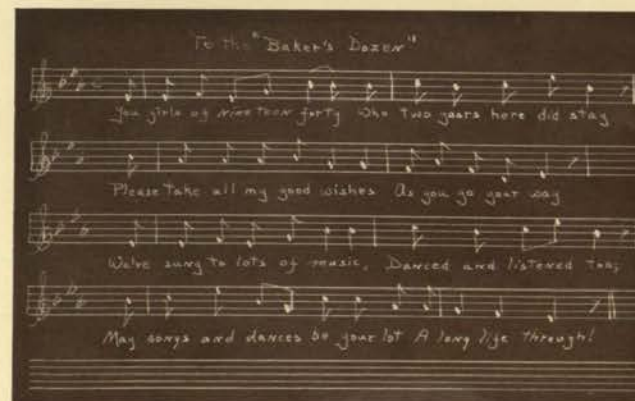 To the "Baker's Dozen"
You girls of nineteen forty Who two years here did stay
Please take all my good wishes As you go your way
We've sung to lots of music, Danced and listened too;
May songs and dances be your lot A long life through!